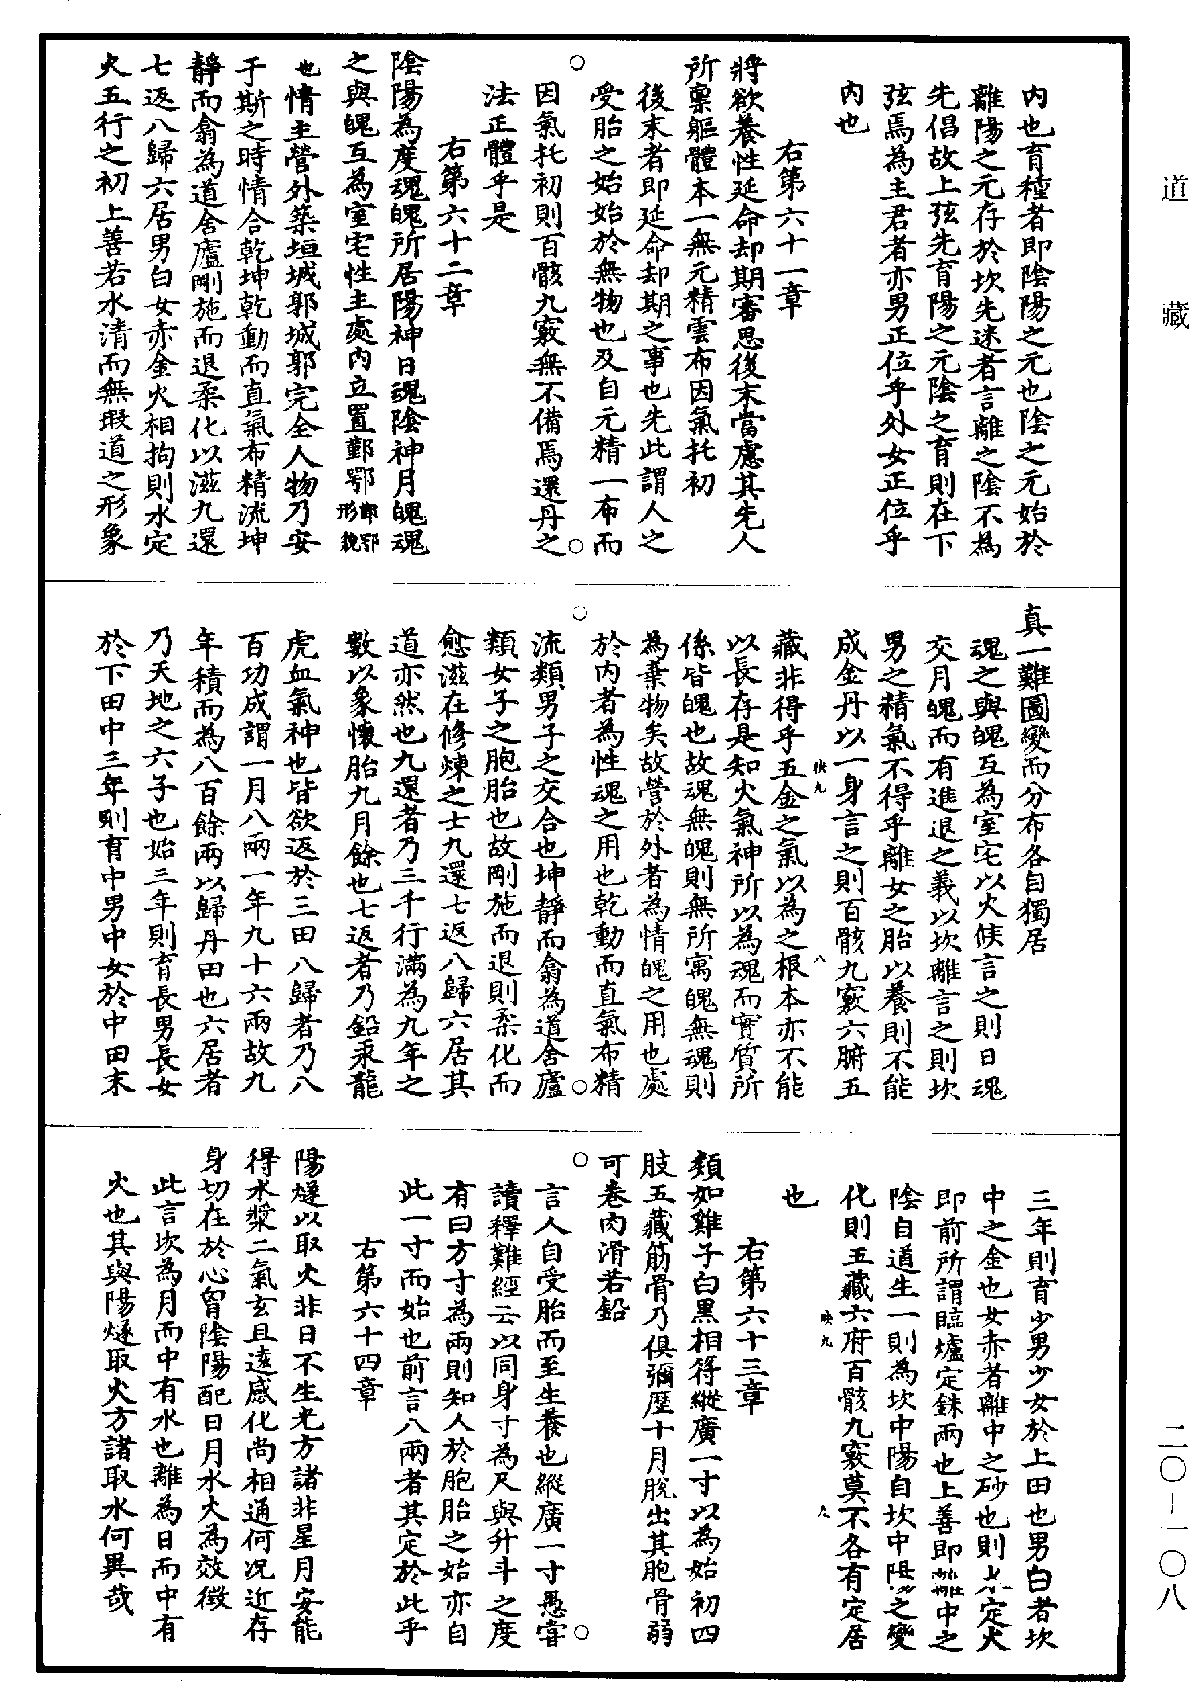 道藏
二〇—一〇八
内也育種者即陰陽之元也陰之元始於
離陽之元存於坎先迷者言離之陰不為
先倡故上弦先育陽之元陰之育則在下
弦焉為主君者亦男正位乎外女正位乎
内也
右第六十一章
將欲養性延命却期審思後末當慮其先人
所稟軀體本一無元精雲布因氣托初
後末者即延命却期之事也先此謂人之
受胎之始始於無物也及自元精一布而
因氣托初則百骸九竅無不備焉還丹之
法正體乎是
右第六十二章
陰陽為度魂魄所居陽神日魂陰神月魄魂
之與魄互為室宅性主處内立置鄞鄂鄞鄂形貌
也情主營外築垣城郭城郭完全人物乃安
于斯之時情合乾坤乾動而直氣布精流坤
静而翕為道舍廬剛施而退柔化以滋九還
七返八歸六居男白女赤金火相拘則水定
火五行之初上善若水清而無瑕道之形象
真一難圖變而分布各自獨居
魂之與魄互為室宅以火候言之則日魂
交月魄而有進退之義以坎離言之則坎
男之精氣不得乎離女之胎以養則不能
成金丹以一身言之則百骸九竅六腑五
藏非得乎五金之氣以為之根本亦不能
以長存是知火氣神所以為魂而實質所
係皆魄也故魂無魄則無所寓魄無魂則
為棄物矣故營於外者為情魄之用也處
於内者為性魂之用也乾動而直氣布精
流類男子之交合也坤静而翕為道舍廬
類女子之胞胎也故剛施而退則柔化而
愈滋在修煉之士九還七返八歸六居其
道亦然也九還者乃三千行滿為九年之
數以象懷胎九月餘也七返者乃鉛汞龍
虎血氣神也皆欲返於三田八歸者乃八
百功成謂一月八兩一年九十六兩故九
年積而為八百餘兩以歸丹田也六居者
乃天地之六子也始三年則育長男長女
於下田中三年則育中男中女於中田末
三年則育少男少女於上田也男白者坎
中之金也女赤者離中之砂也則水定火
即前所謂臨爐定銖兩也上善即離中之
陰自道生一則為坎中陽自坎中陽之變
化則五藏六府百骸九竅莫不各有定居
也
右第六十三章
類如雞子白黑相符縱廣一寸以為始初四
肢五藏筋骨乃俱彌歷十月脱出其胞骨弱
可卷肉滑若鉛
言人自受胎而至生養也縱廣一寸愚嘗
讀釋難經云以同身寸為尺與升斗之度
有曰方寸為兩則知人於胞胎之始亦自
此一寸而始也前言八兩者其定於此乎
右第六十四章
陽燧以取火非日不生光方諸非星月安能
得水漿二氣玄且遠感化尚相通何况近存
身切在於心胷陰陽配日月水火為效徵
此言坎為月而中有水也離為日而中有
火也其與陽燧取火方諸取水何異哉